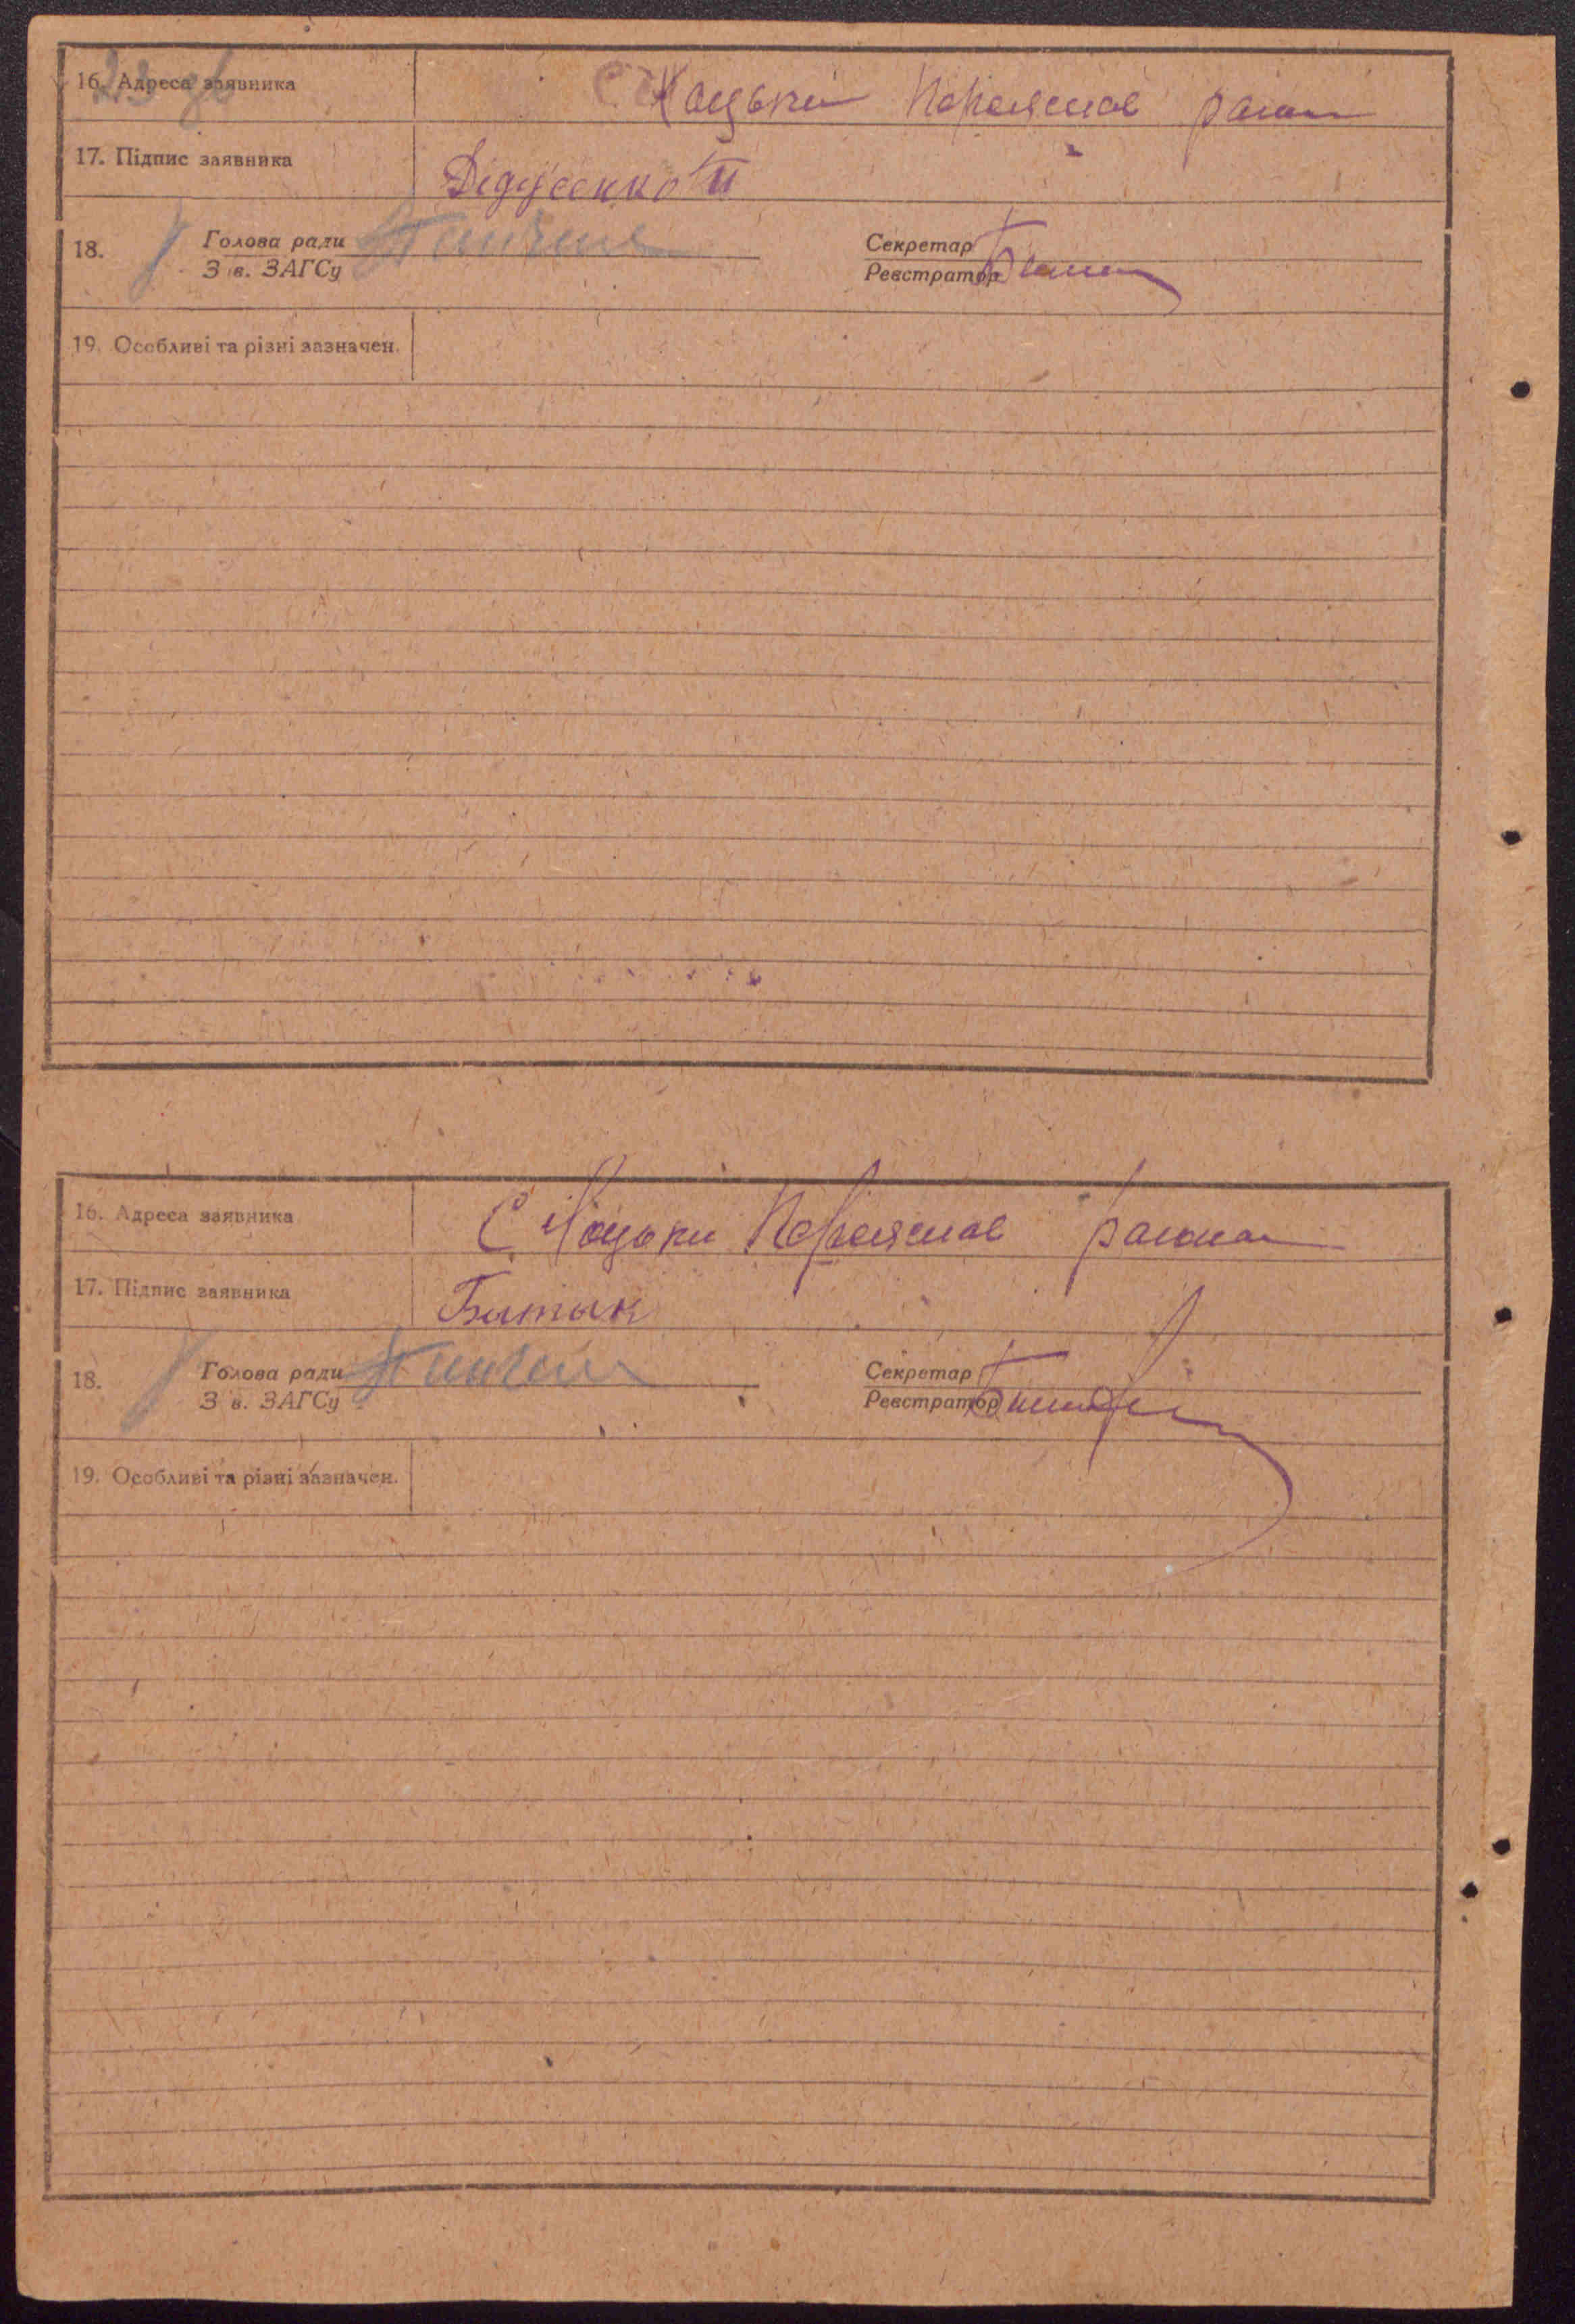 16. Адреса заявника С. Хоцьки Переяслав район
17. Підпис заявника Дідусенко П
18. Голова ради
З в. ЗАГСу
Секретар
Реєстратор
19. Особливі та різні зазначен.
16. Адреса заявника С. Хоцьки Переяслав района
17. Підпис заявника Батык
18. Голова ради
З в. ЗАГСу
Секретар
Реєстратор
19. Особливі та різні зазначен.